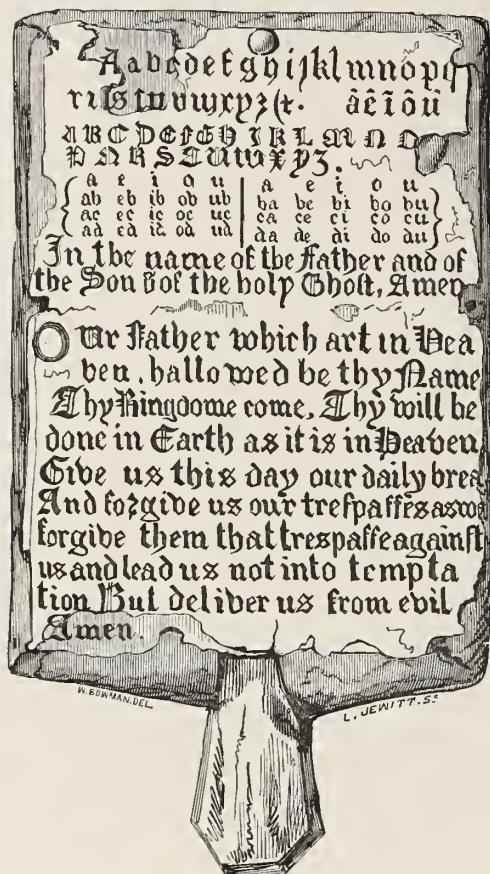 A a b c d e f g h i j k l m n o p q
r r s ſ t u v w x y z & . ã ẽ ĩ õ ũ
A B C D E F G H I K L M N O
P Q R S T U W X Y Z .
a e i o u a e i o u
ab eb ib ob ub ba be bi bo bu
ac ec ic oc uc ca ce ci co cu
ad ed id od ud da de di do du
In the name of the Father and of
the Son & of the holy Ghoſt, Amen
OUr Father which art in Hea
ven, hallowed be thy Name
Thy Kingdome come, Thy will be
done in Earth as it is in Heaven,
Give us this day our daily brea
And forgive us our treſpaſſes as we
forgive them that treſpaſſe againſt
us and lead us not into tempta
tion But deliver us from evil
Amen.
W. BOWMAN. DEL
L. JEWITT. Sc